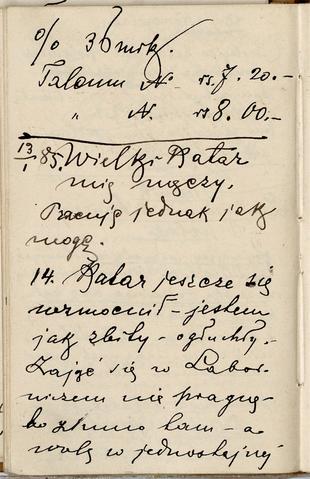 % 36 mrk.
Talonu N. rs. 7. 20.-
„ N. rs 8. 00.-
13/1 85. Wielki Katar
mię męczy.
Pracuję jednak jak
mogę.
14. Katar jeszcze się
wzmocnił - jestem
jak zbity - ogłuchły.-
Zająć się w Labor-
nizem nie pragnę-
bo zimno tam - a
wolę w jednostajnej